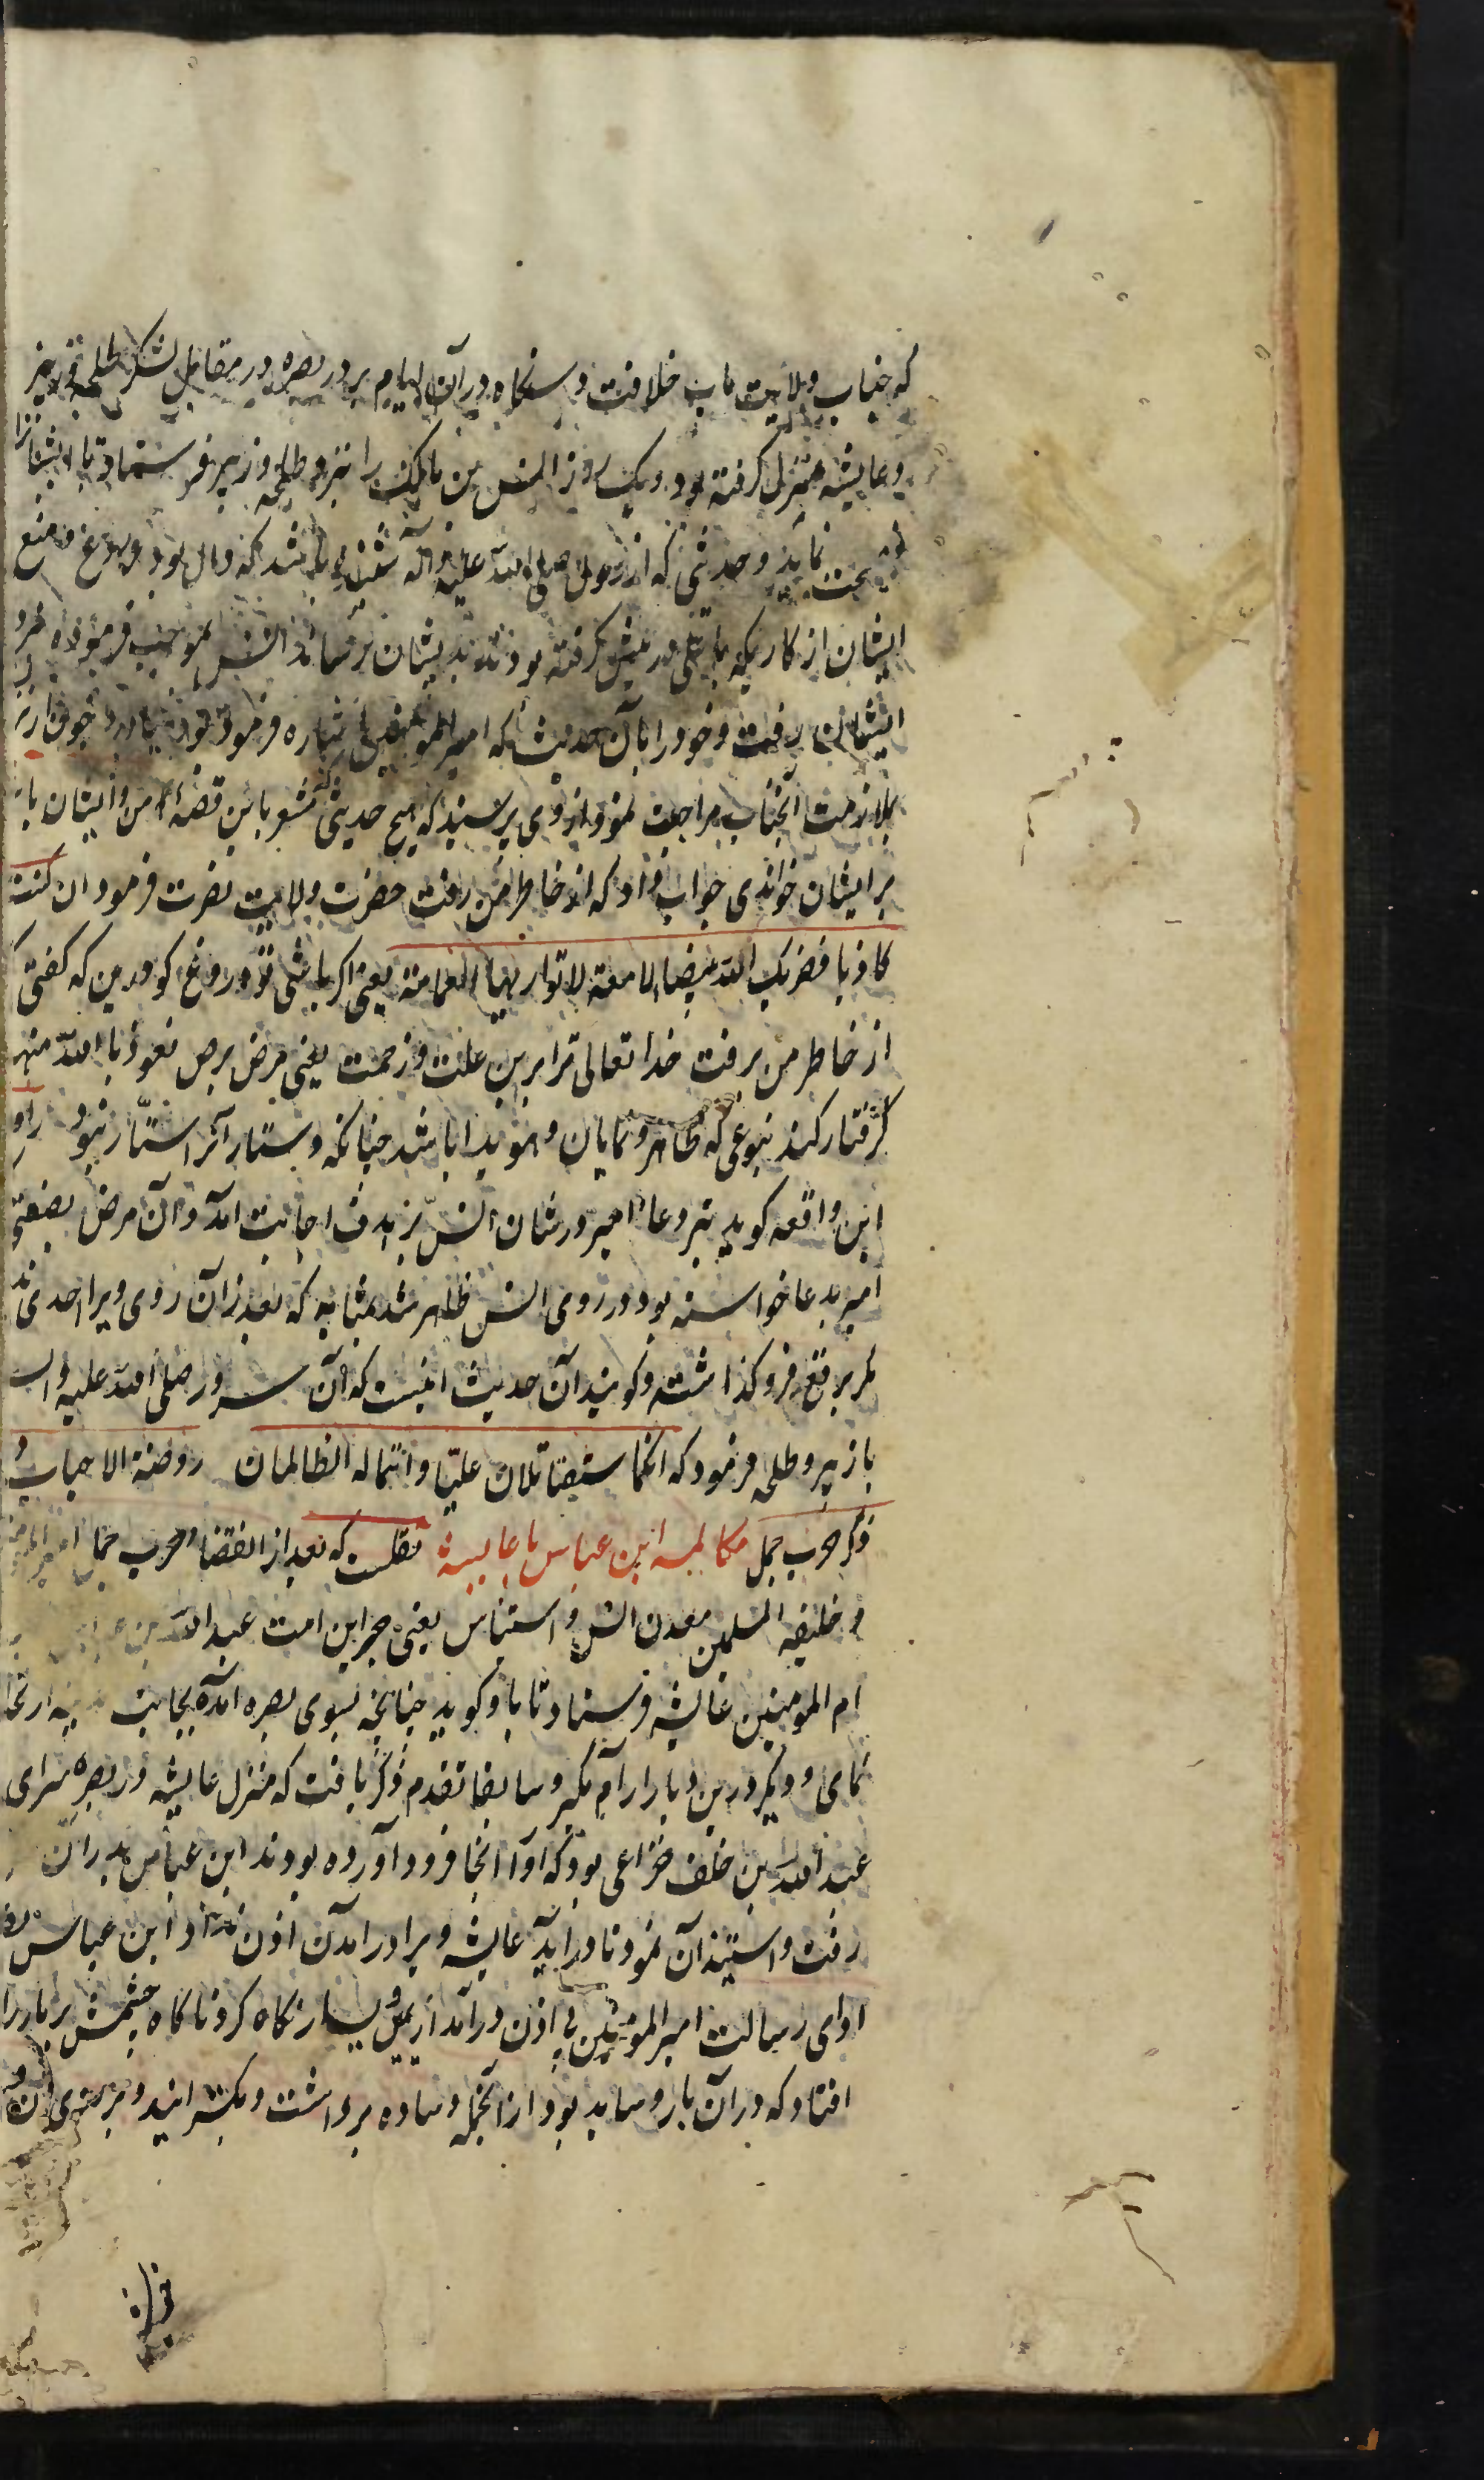 که جناب ولایت ماب خلافت دستگاه در آن ایام بر در بصره در مقابل لشکر طلحه و زبیر
و عایشه منزل گرفته بود و یک روز انس بن مالک را نزد طلحه و زبیر فرستاد تا ایشانرا
نصیحت نماید و حدیثی که از رسول صلی الله علیه و آله شنیده باشد که دال بود بر منع
ایشان از کاریکه با علی در پیش گرفته بودند بدیشان رساند انس بموجب فرموده نزد
ایشان رفت و خود را بآن حدیث که امیر المومنین اشاره فرموده بود نیاورد چون از نزد
بملازمت آنجناب مراجعت نمود از وی پرسید که هیچ حدیثی که مشعر باین قضیه من و ایشان باشد
بر ایشان خواندی جواب داد که از خاطر من رفت حضرت ولایت نصرت فرمود ان کنت
کاذبا فضربک الله بیضاء لامعة لا تواریها العمامة یعنی اگر باشی تو دروغ گو درین که گفتی که
از خاطر من برفت خدا تعالی ترا برین علت و زحمت یعنی مرض برص نعوذ با الله منها
گرفتار کند بنوعی که ظاهر و نمایان و هویدا باشد چنانکه دستار آنرا ستار نبود راوی
این واقعه گوید تیر دعاء امیر در شان انس بر هدف اجابت آمد و آن مرض بصفتی که
امیر بدعا خواسته بود در روی انس ظاهر شد بمثابه که بعد از آن روی ویرا احدی ندید
مگر برقع فرو گذاشته و گویند آن حدیث اینست که آن سرور صلی الله علیه و اله
با زبیر و طلحه فرمود که انکما ستقاتلان علیا و انتما له الظالمان روضة الاحباب
ذکر حرب جمل مکالمه ابن عباس با عایشه نقلست که بعد از انقضاء حرب جمل امیر المومنین
و خلیفه المسلمین معدن انس و استیناس یعنی حبر این امت عبد الله بن عباس
ام المومنین عایشه فرستاد تا باو گوید چنانچه بسوی بصره آمده بجانب مدینه ارتحال
نمای و دیگر درین دیار آرام مگیر و سابقا تقدم ذکر یافت که منزل عایشه در بصره سرای
عبد الله بن خلف خزاعی بود که او را آنجا فرود آورده بودند ابن عباس بدر آن
رفت و استیذان نمود تا در آید عایشه ویرا در آمدن اذن نداد ابن عباس
ادای رسالت امیر المومنین بی اذن در آمد از یمین و یسار نگاه کرد ناگاه چشمش بر بار را
افتاد که در آن بار وساید بود از آنجمله وساده برداشت و بگسترانید و بر روی آن